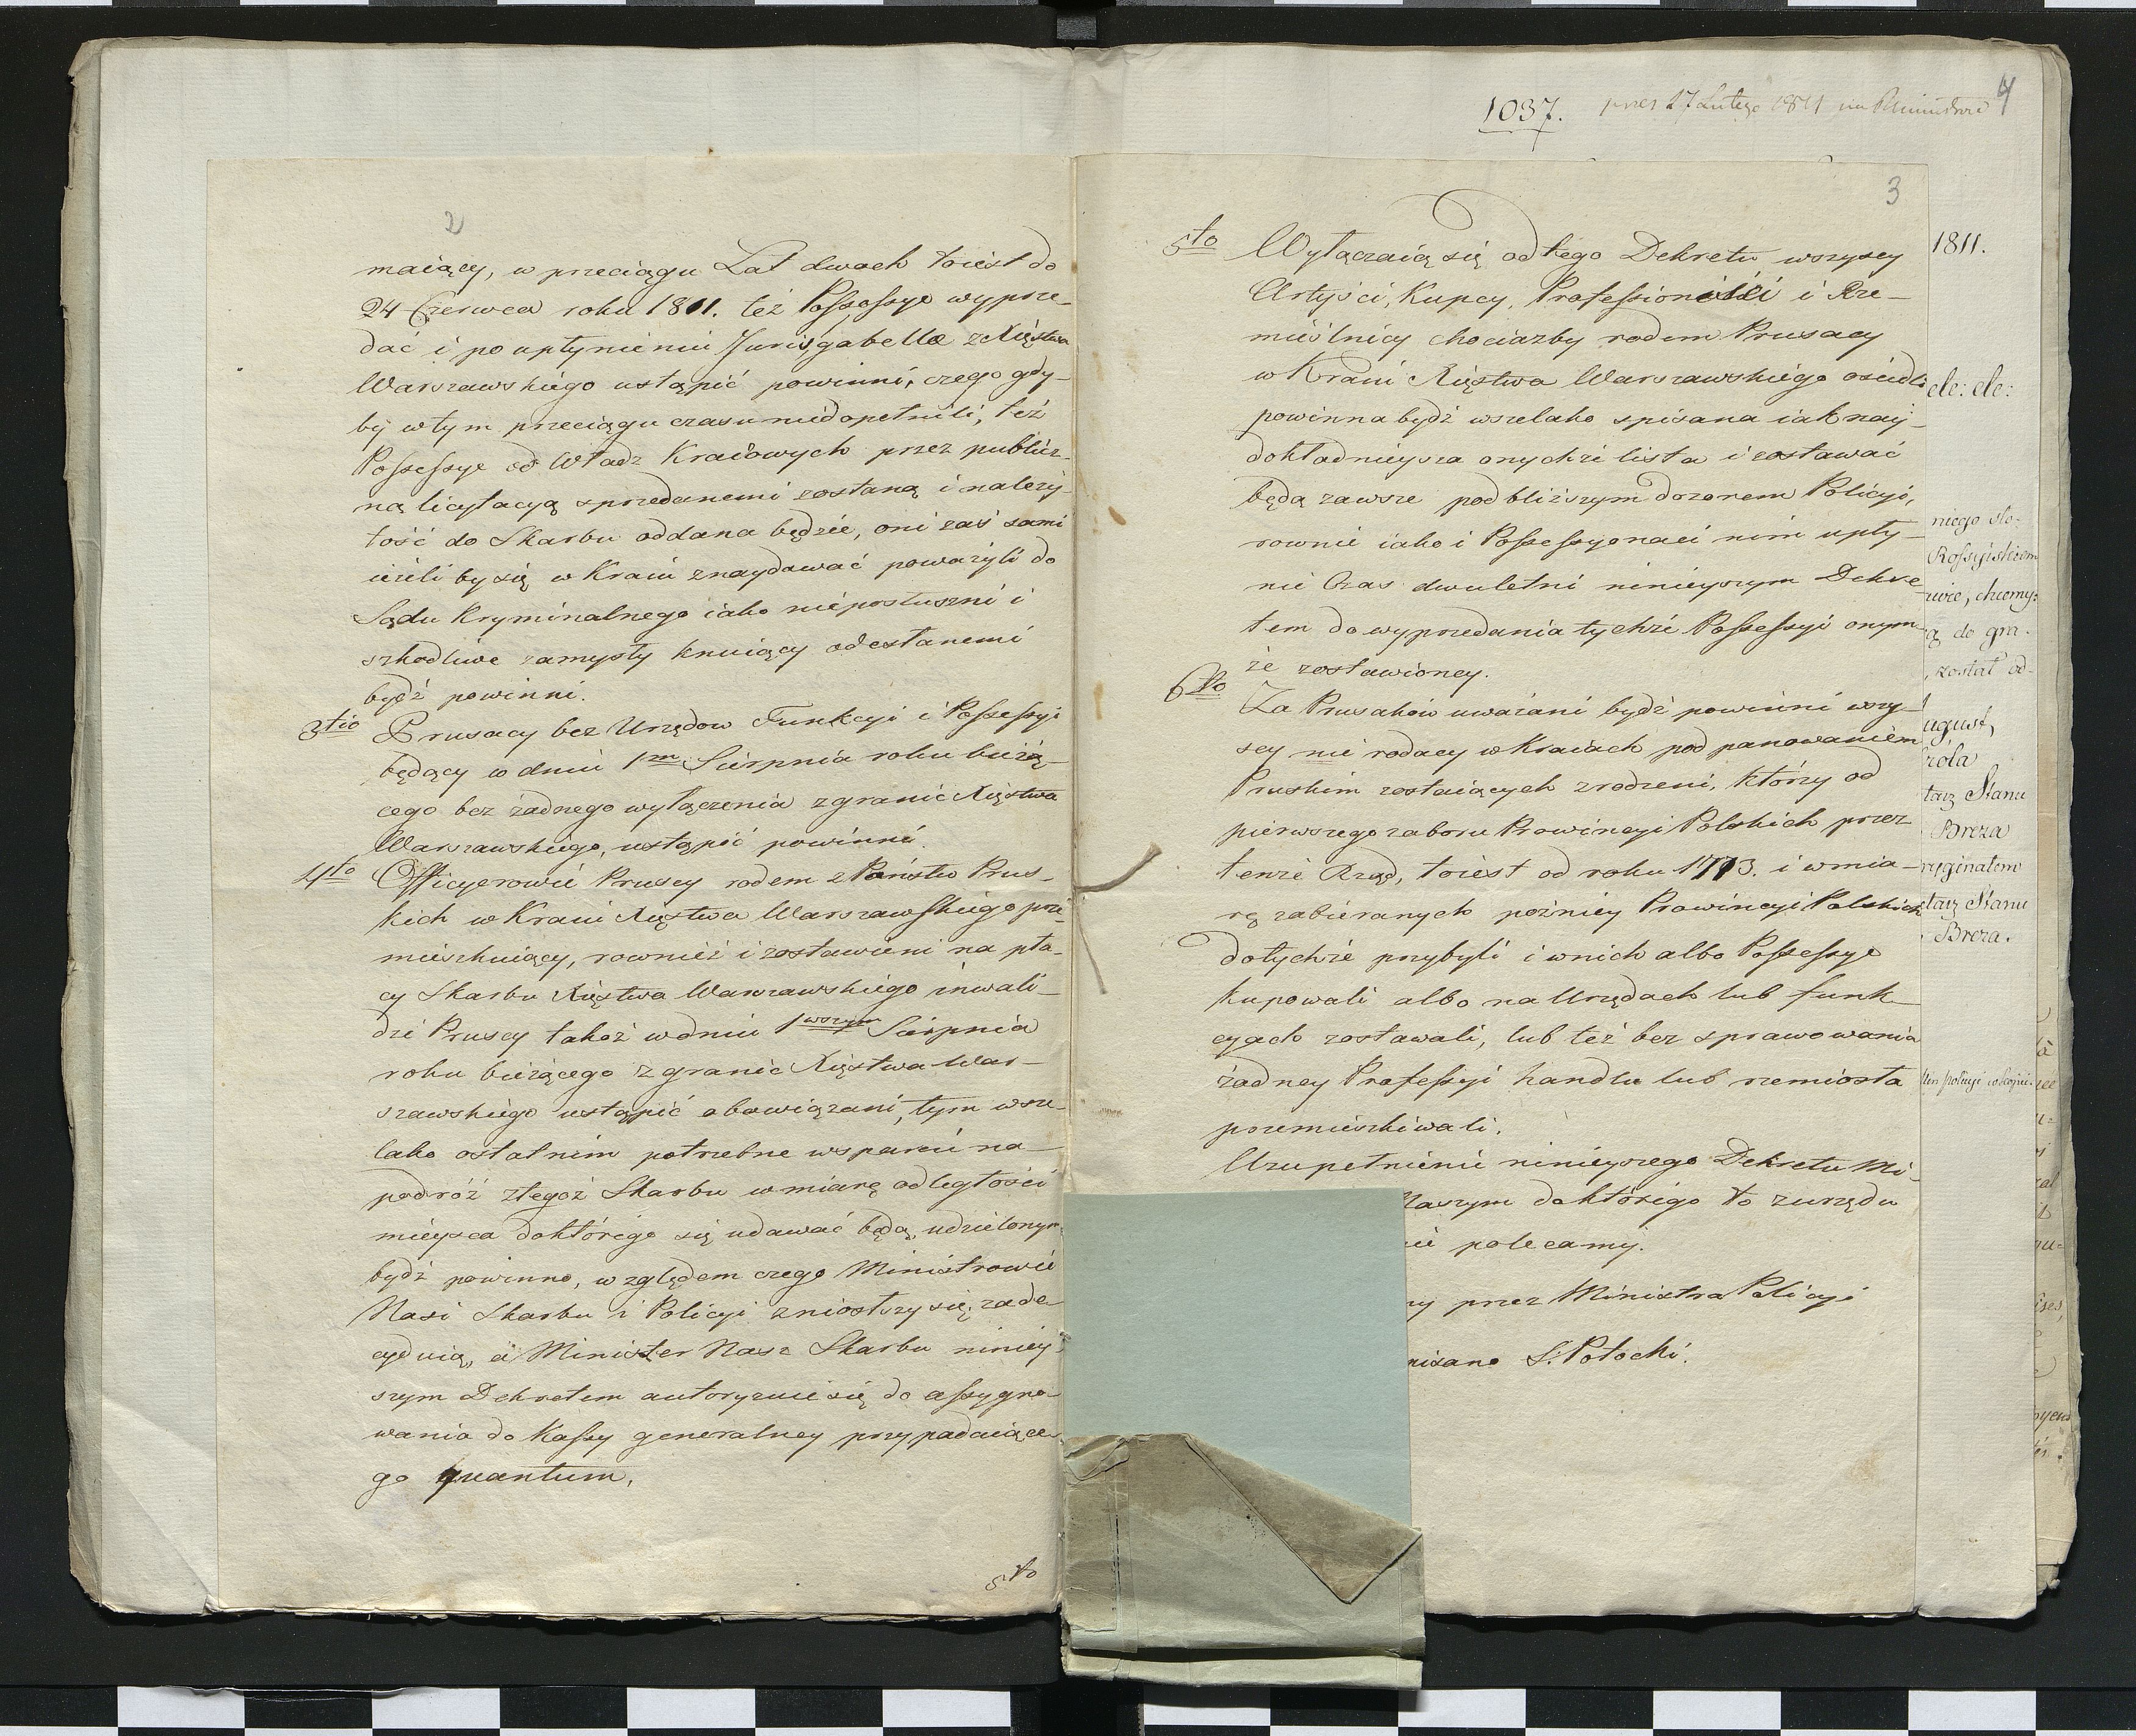 2
maiący, w przeciągu Lat dwoch toiest do
24 Czerwca roku 1811. też Possessye wyprze-
dać i po upłynieniu Juris gabellae z Xięstwa
Warszawskiego ustąpić powinni, czego gdy-
by w tym przeciągu czasu niedopełnili, też
Possessye od Władz Kraiowych przez publicz-
ną licytacyą sprzedanemi zostaną i należy-
tość do Skarbu oddana będzie, oni zaś sami
ieżeli by się w Kraiu znaydować poważyli do
Sądu Kryminalnego iako nieposłuszni i
szkodliwe zamysły knuiący odesłanemi
bydź powinni.
3tio Prusacy bez Urzędow Funkcyi i Possessyi
będący w dniu 1m Sierpnia roku bieżą-
cego bez żadnego wyłączenia z granic Xięstwa
Warszawskiego, ustąpić powinni.
4to Officyerowie Pruscy rodem z Państw Prus-
kich w Kraiu Xięstwa Warszawskiego prze-
mieszkuiący, rownież i zostawieni na pła-
cy Skarbu Xięstwa Warszawskiego inwali-
dzi Pruscy takoż w dniu 1wszym Sierpnia
roku bieżącego z granic Xięstwa War-
szawskiego ustąpić obowiązani, tym wsze-
lako ostatnim potrzebne wsparcie na
podróż z tegoż Skarbu w miarę odległości
mieysca do którego się udawać będą, udzielonym
bydź powinno, względem czego Ministrowie
Nasi Skarbu i Policyi zniosłszy się, zade-
cyduią, a Minister Nasz Skarbu niniey-
szym Dekretem autoryzuie się do assygno-
wania do Kassy generalney przypadaiące-
go quantum.
5to
1037. przez 17 Lutego 1811 4
3
5to Wyłączaią się od tego Dekretu wszyscy
Artyści, Kupcy, Professioniści i Rze-
mieślnicy chociażby rodem Prusacy
w Kraiu Xięstwa Warszawskiego osiedli
powinna bydź wszelako spisana iak nay-
dokładnieysza onychże lista i zostawać
będą zawsze pod bliższym dozorem Policyi,
rownie iako i Possessyonaci nim upły-
nie Czas dwuletni ninieyszym Dekre-
tem do wyprzedania tychże Possessyi onym-
że zostawioney.
6to Za Prusaków uważani bydź powinni wszy-
scy nie rodacy w Kraiach pod panowaniem
Pruskim zostaiących zrodzeni, którzy od
pierwszego zaboru Prowincyi Polskich przez
tenże Rząd, toiest od roku 1773. i w mia-
rę zabieranych pożniey Prowincyi Polskich
do tychże przybyli i w nich albo Possessye
kupowali albo na Urzędach lub funk-
cyach zostawali, lub też bez sprawowania
żadney Professyi handlu lub rzemiosła
przemieszkiwali.
Uzupełnienie ninieyszego Dekretu Mi-
Naszym do którego to z urzędu
ie polecamy.
ny przez Ministra Policyi
pisano S: Potocki.
1811.
etc: etc:
niego sto-
Rossyiskiem
do gra-
, został od-
ugust,
róla
tarz Stanu
Breza
ryginałem
tarz Stanu
Breza.